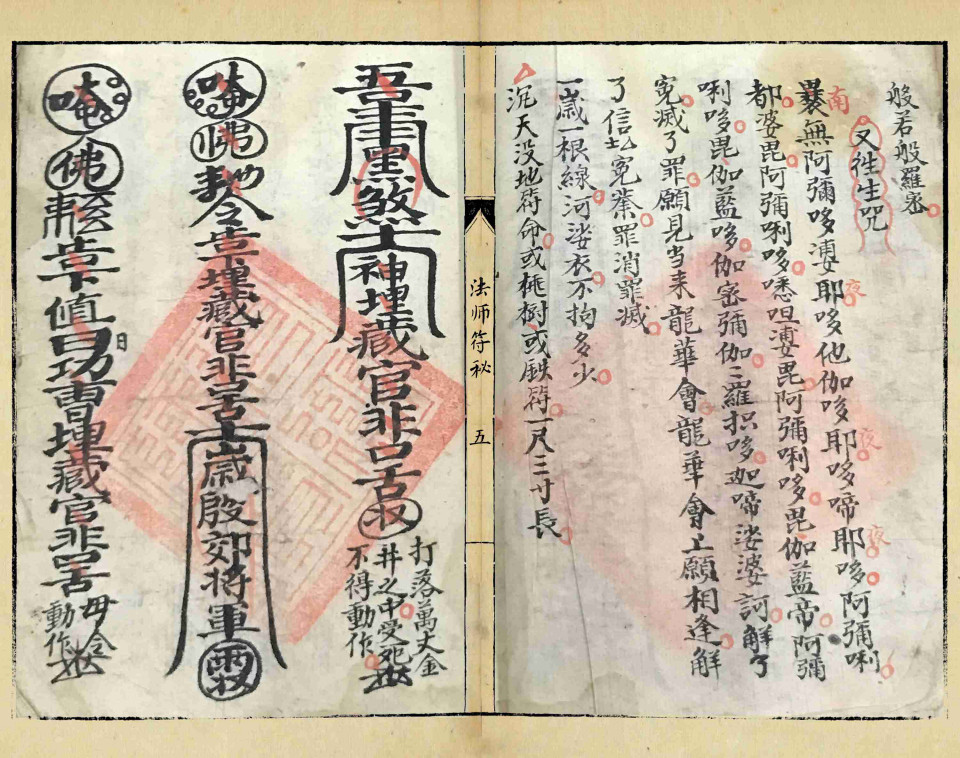 般若般羅密
又往生咒
南無阿彌哆婆耶哆他伽哆耶哆啼耶哆阿彌唎
都婆毘阿彌唎哆悉呾婆毘阿彌唎哆毘伽藍帝阿彌
唎哆毘伽藍哆伽密彌伽〻羅枳哆迦啼娑婆訶解了
冤滅了罪願見当来龍華會龍華會上願相逢解
了信士冤業罪消罪滅
一歲一根線河娑衣不拘多少
沉天没地符命或桃樹或鉄符一尺三寸長
法师符秘
五
黑煞
神埋藏官非口舌
打落萬丈金
井之中受死
不得動作
唵
佛
令
埋藏官非口舌
歲殷郊將軍
唵
佛
值日功曹埋藏官非口舌
動作